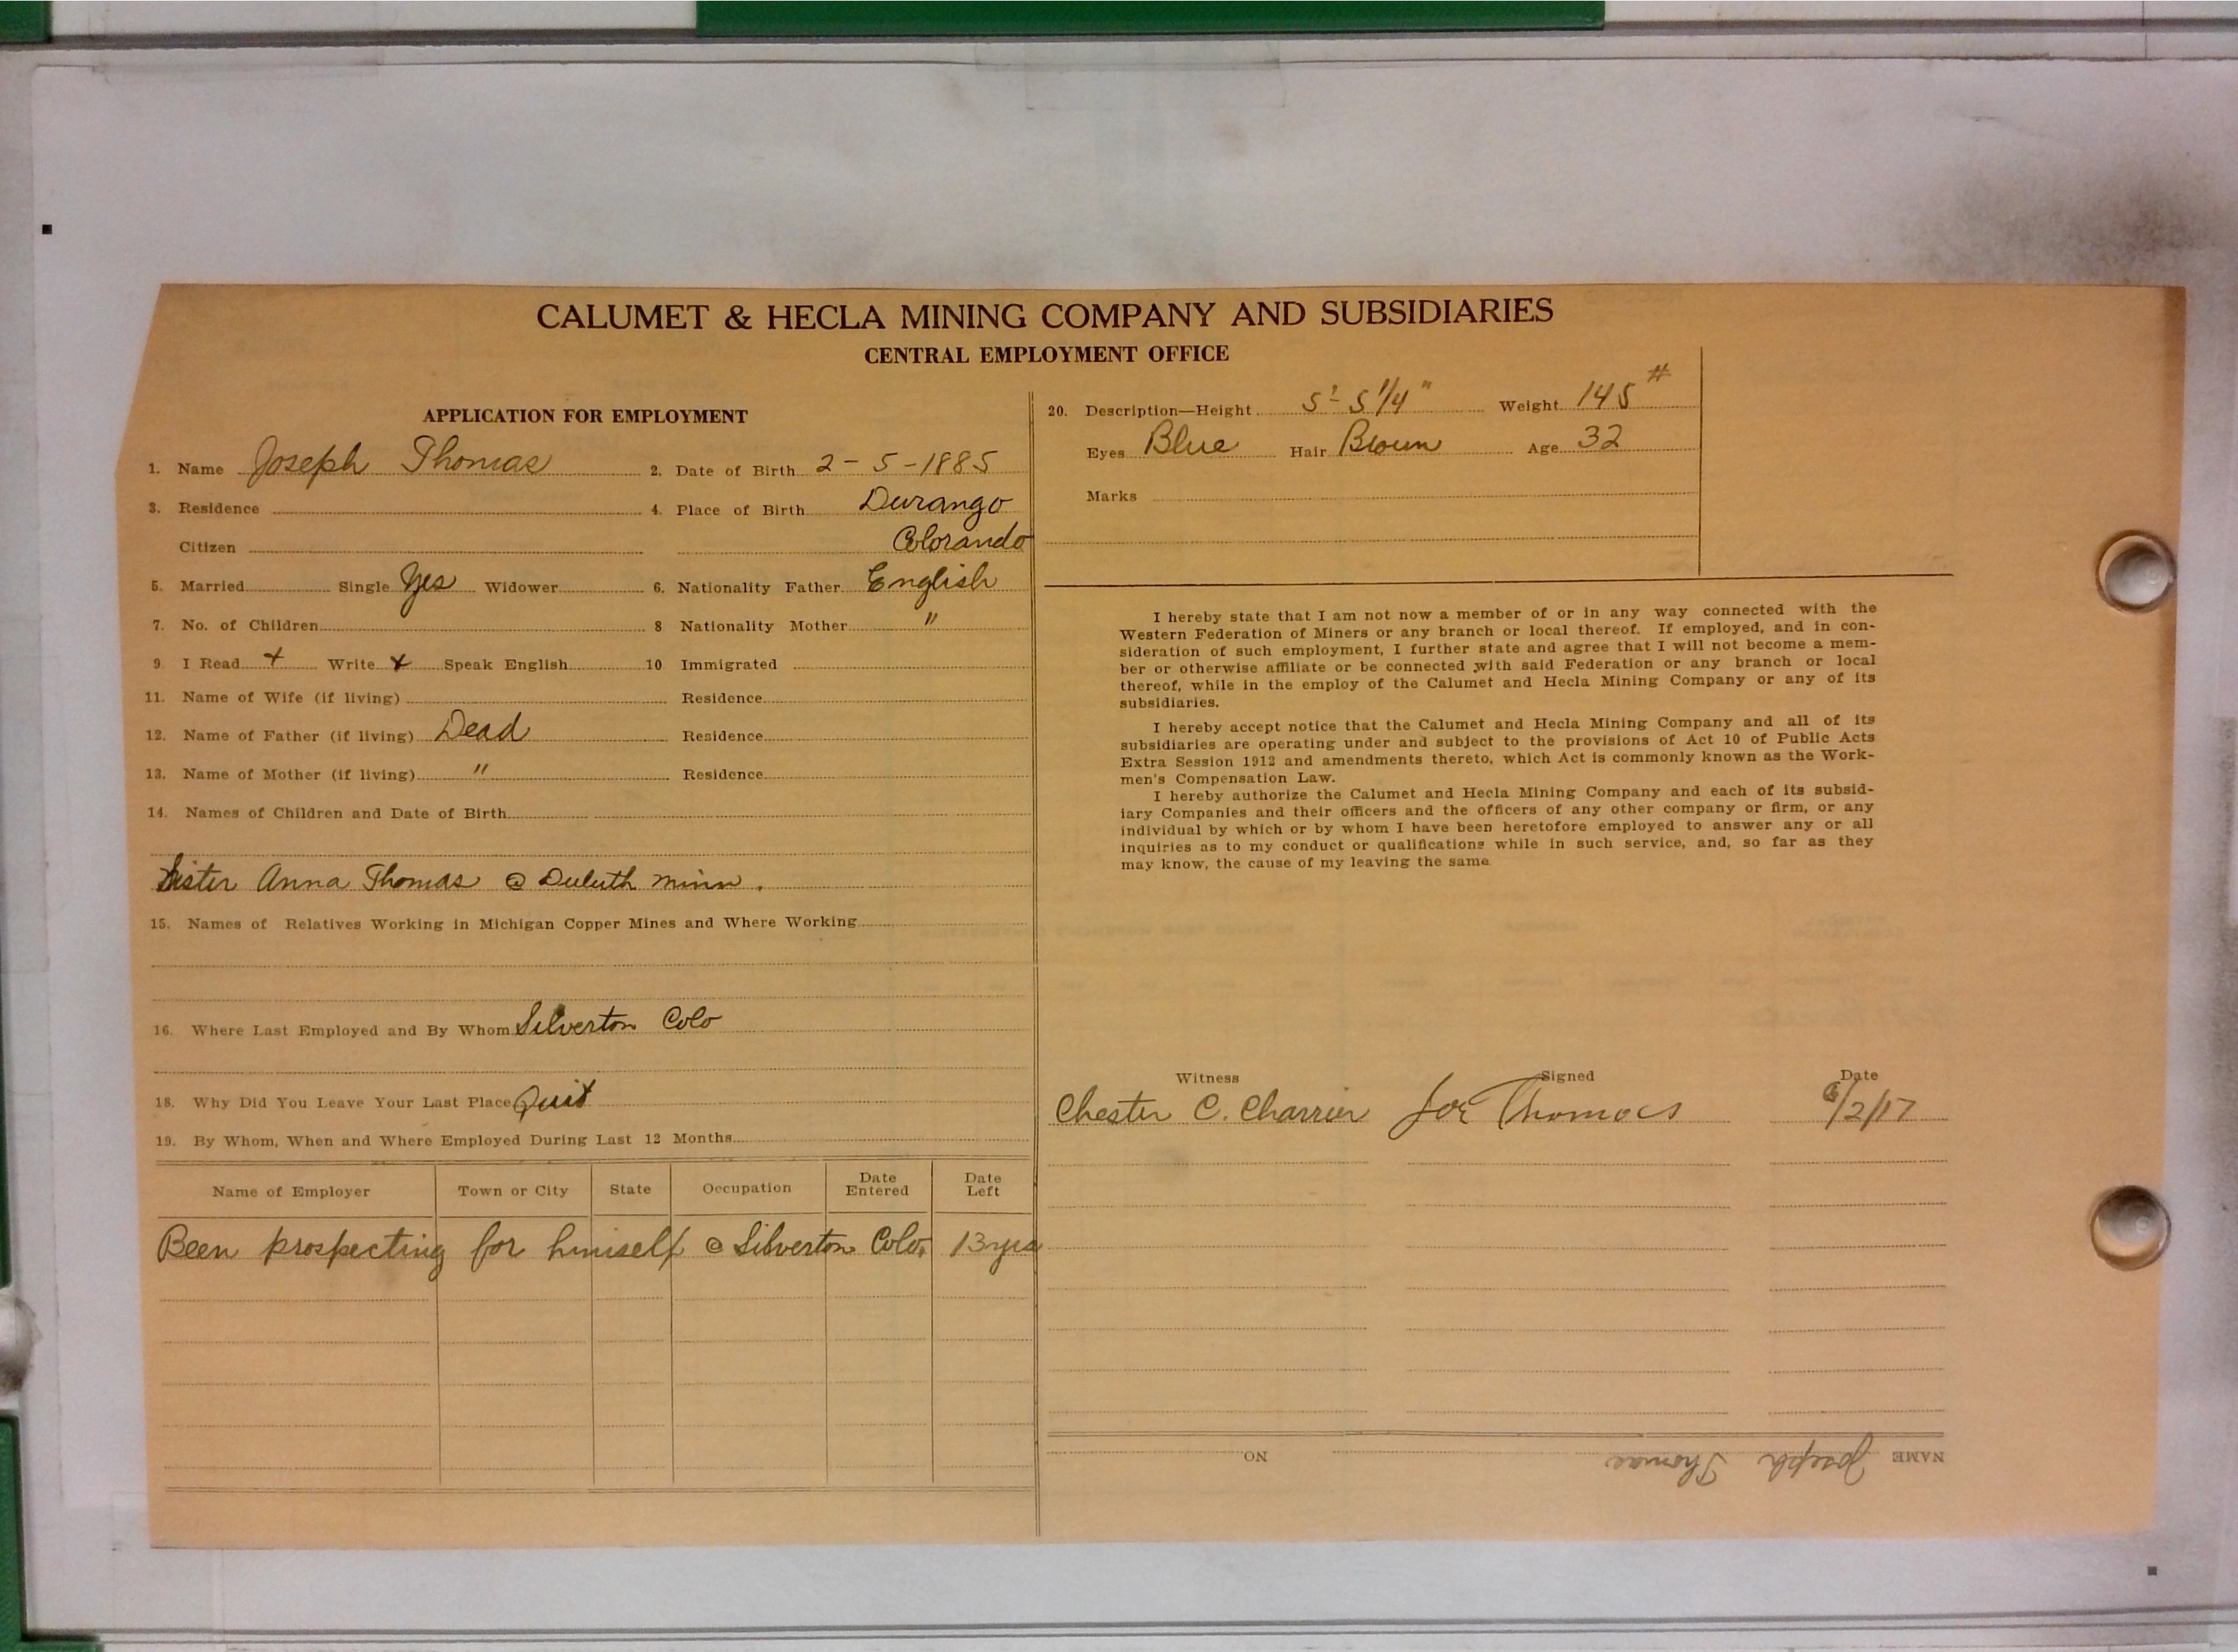 CALUMET & HECLA MINING COMPANY AND SUBSIDIARIES
CENTRAL EMPLOYMENT OFFICE
APPLICATION FOR EMPLOYMENT
1. Name Joseph Thomas 2. Date of Birth 2-5-1885
3. Residence 4. Place of Birth Durango
Citizen Colorando
5. Married Single Yes Widower 6. Nationality Father English
7. No. of Children 8 Nationality Mother "
9. I Read + Write + Speak English 10 Immigrated
11. Name of Wife (if living) Residence
12. Name of Father (if living) Dead Residence
13. Name of Mother (if living) " Residence
14. Names of Children and Date of Birth
Sister Anna Thomas @ Duluth Minn.
15. Names of Relatives Working in Michigan Copper Mines and Where Working
16. Where Last Employed and By Whom Silverton Colo
18. Why Did You Leave Your Last Place Quit
19. By Whom, When and Where Employed During Last 12 Months
Name of Employer Town or City State Occupation Date Entered Date Left
Been prospecting for himself @ Silverton Colo, 13 yrs
20. Description—Height 5'-5 1/4" Weight 145#
Eyes Blue Hair Brown Age 32
Marks
I hereby state that I am not now a member of or in any way connected with the
Western Federation of Miners or any branch or local thereof. If employed, and in con-
sideration of such employment, I further state and agree that I will not become a mem-
ber or otherwise affiliate or be connected with said Federation or any branch or local
thereof, while in the employ of the Calumet and Hecla Mining Company or any of its
subsidiaries.
I hereby accept notice that the Calumet and Hecla Mining Company and all of its
subsidiaries are operating under and subject to the provisions of Act 10 of Public Acts
Extra Session 1912 and amendments thereto, which Act is commonly known as the Work-
men's Compensation Law.
I hereby authorize the Calumet and Hecla Mining Company and each of its subsid-
iary Companies and their officers and the officers of any other company or firm, or any
individual by which or by whom I have been heretofore employed to answer any or all
inquiries as to my conduct or qualifications while in such service, and, so far as they
may know, the cause of my leaving the same
Witness Signed Date
Chester C. Charrier Joe Thomas 6/2/17
NAME Joseph Thomas NO